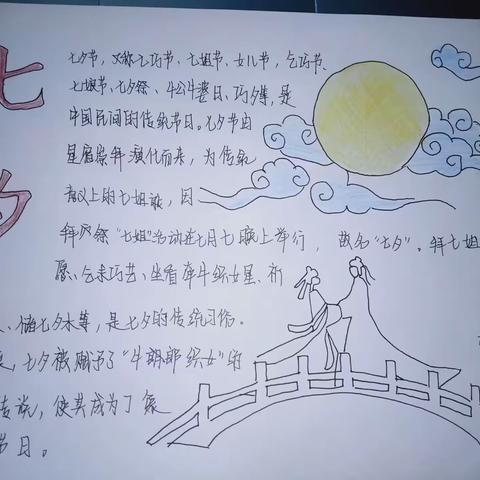 七夕
七夕节，又称乞巧节、七姐节、女儿节、乞巧节、
七娘节、七夕祭、牛公牛婆日、巧夕等，是
中国民间的传统节日。七夕节由
星宿崇拜演化而来，为传统
意义上的七姐诞，因
拜祭“七姐”活动在七月七晚上举行，故名“七夕”。拜七姐
愿、乞求巧艺、坐看牵牛织女星、祈
、储七夕水等，是七夕的传统习俗。
，七夕被赋予了“牛郎织女”的
传说，使其成为了象
节日。